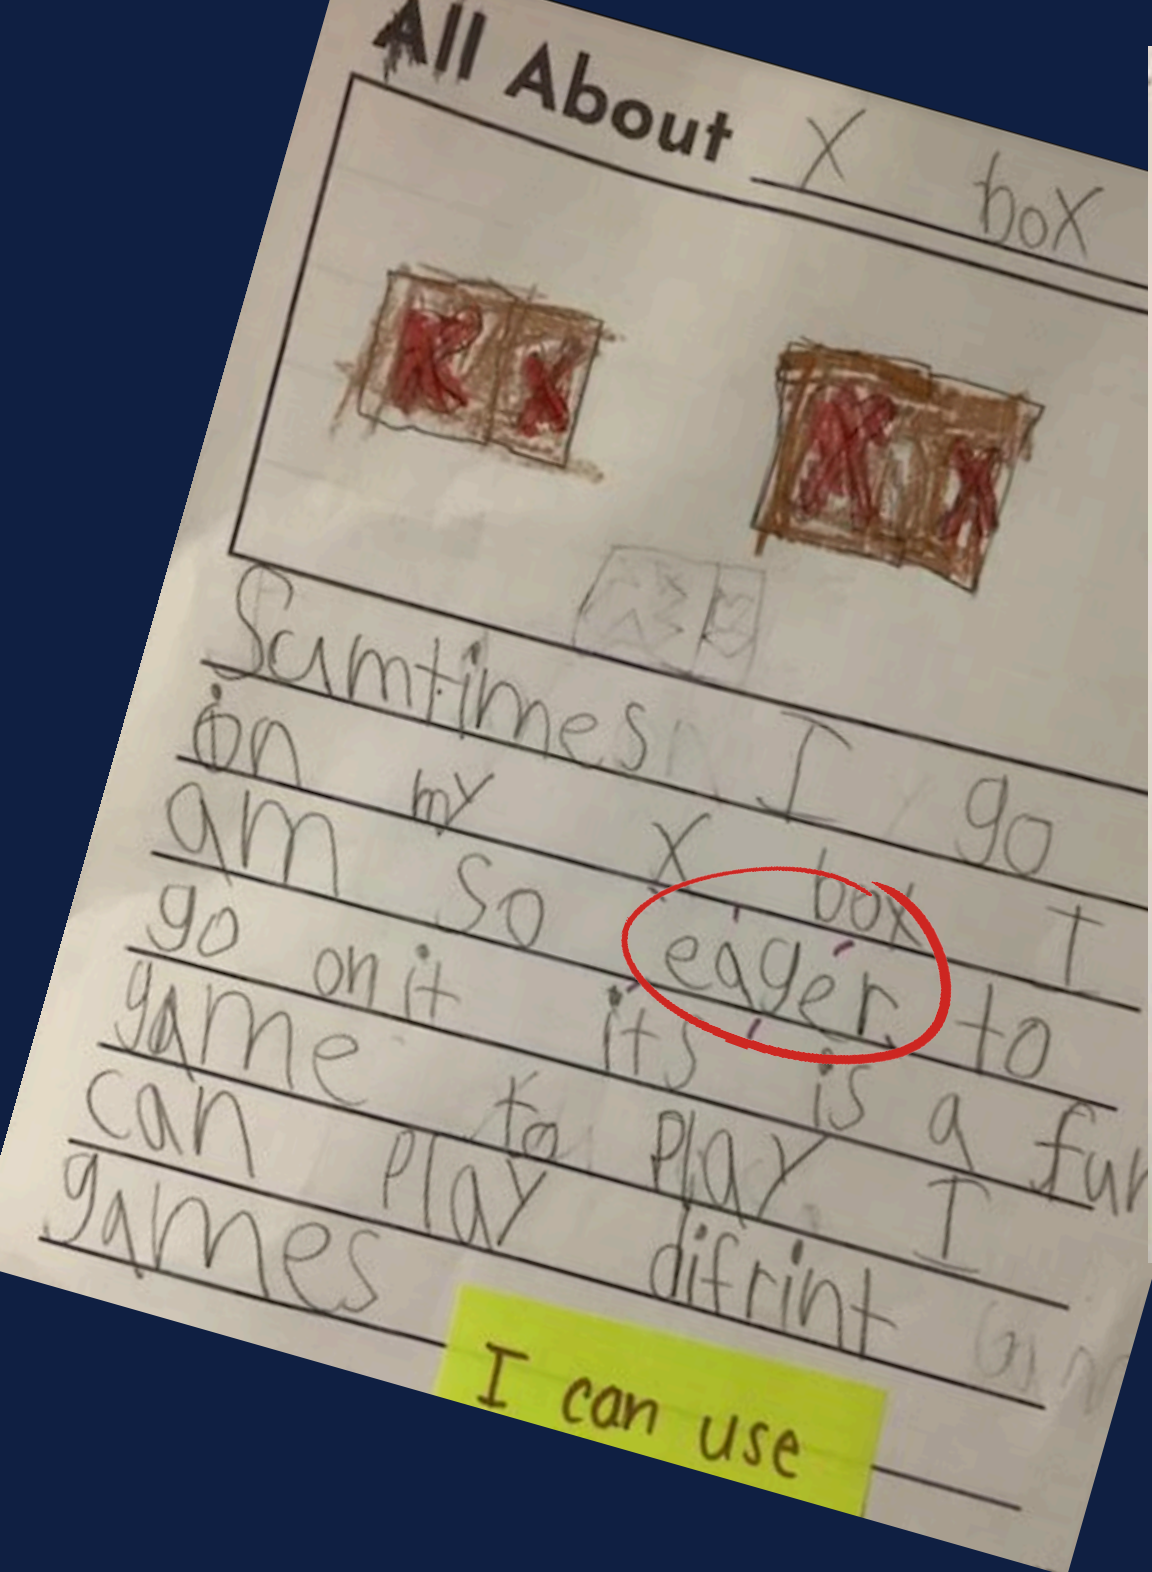 All About X box
Sumtimes I go
on my X box I
am so eager to
go on it its is a fun
game to play I
can play difrint
games
I can use